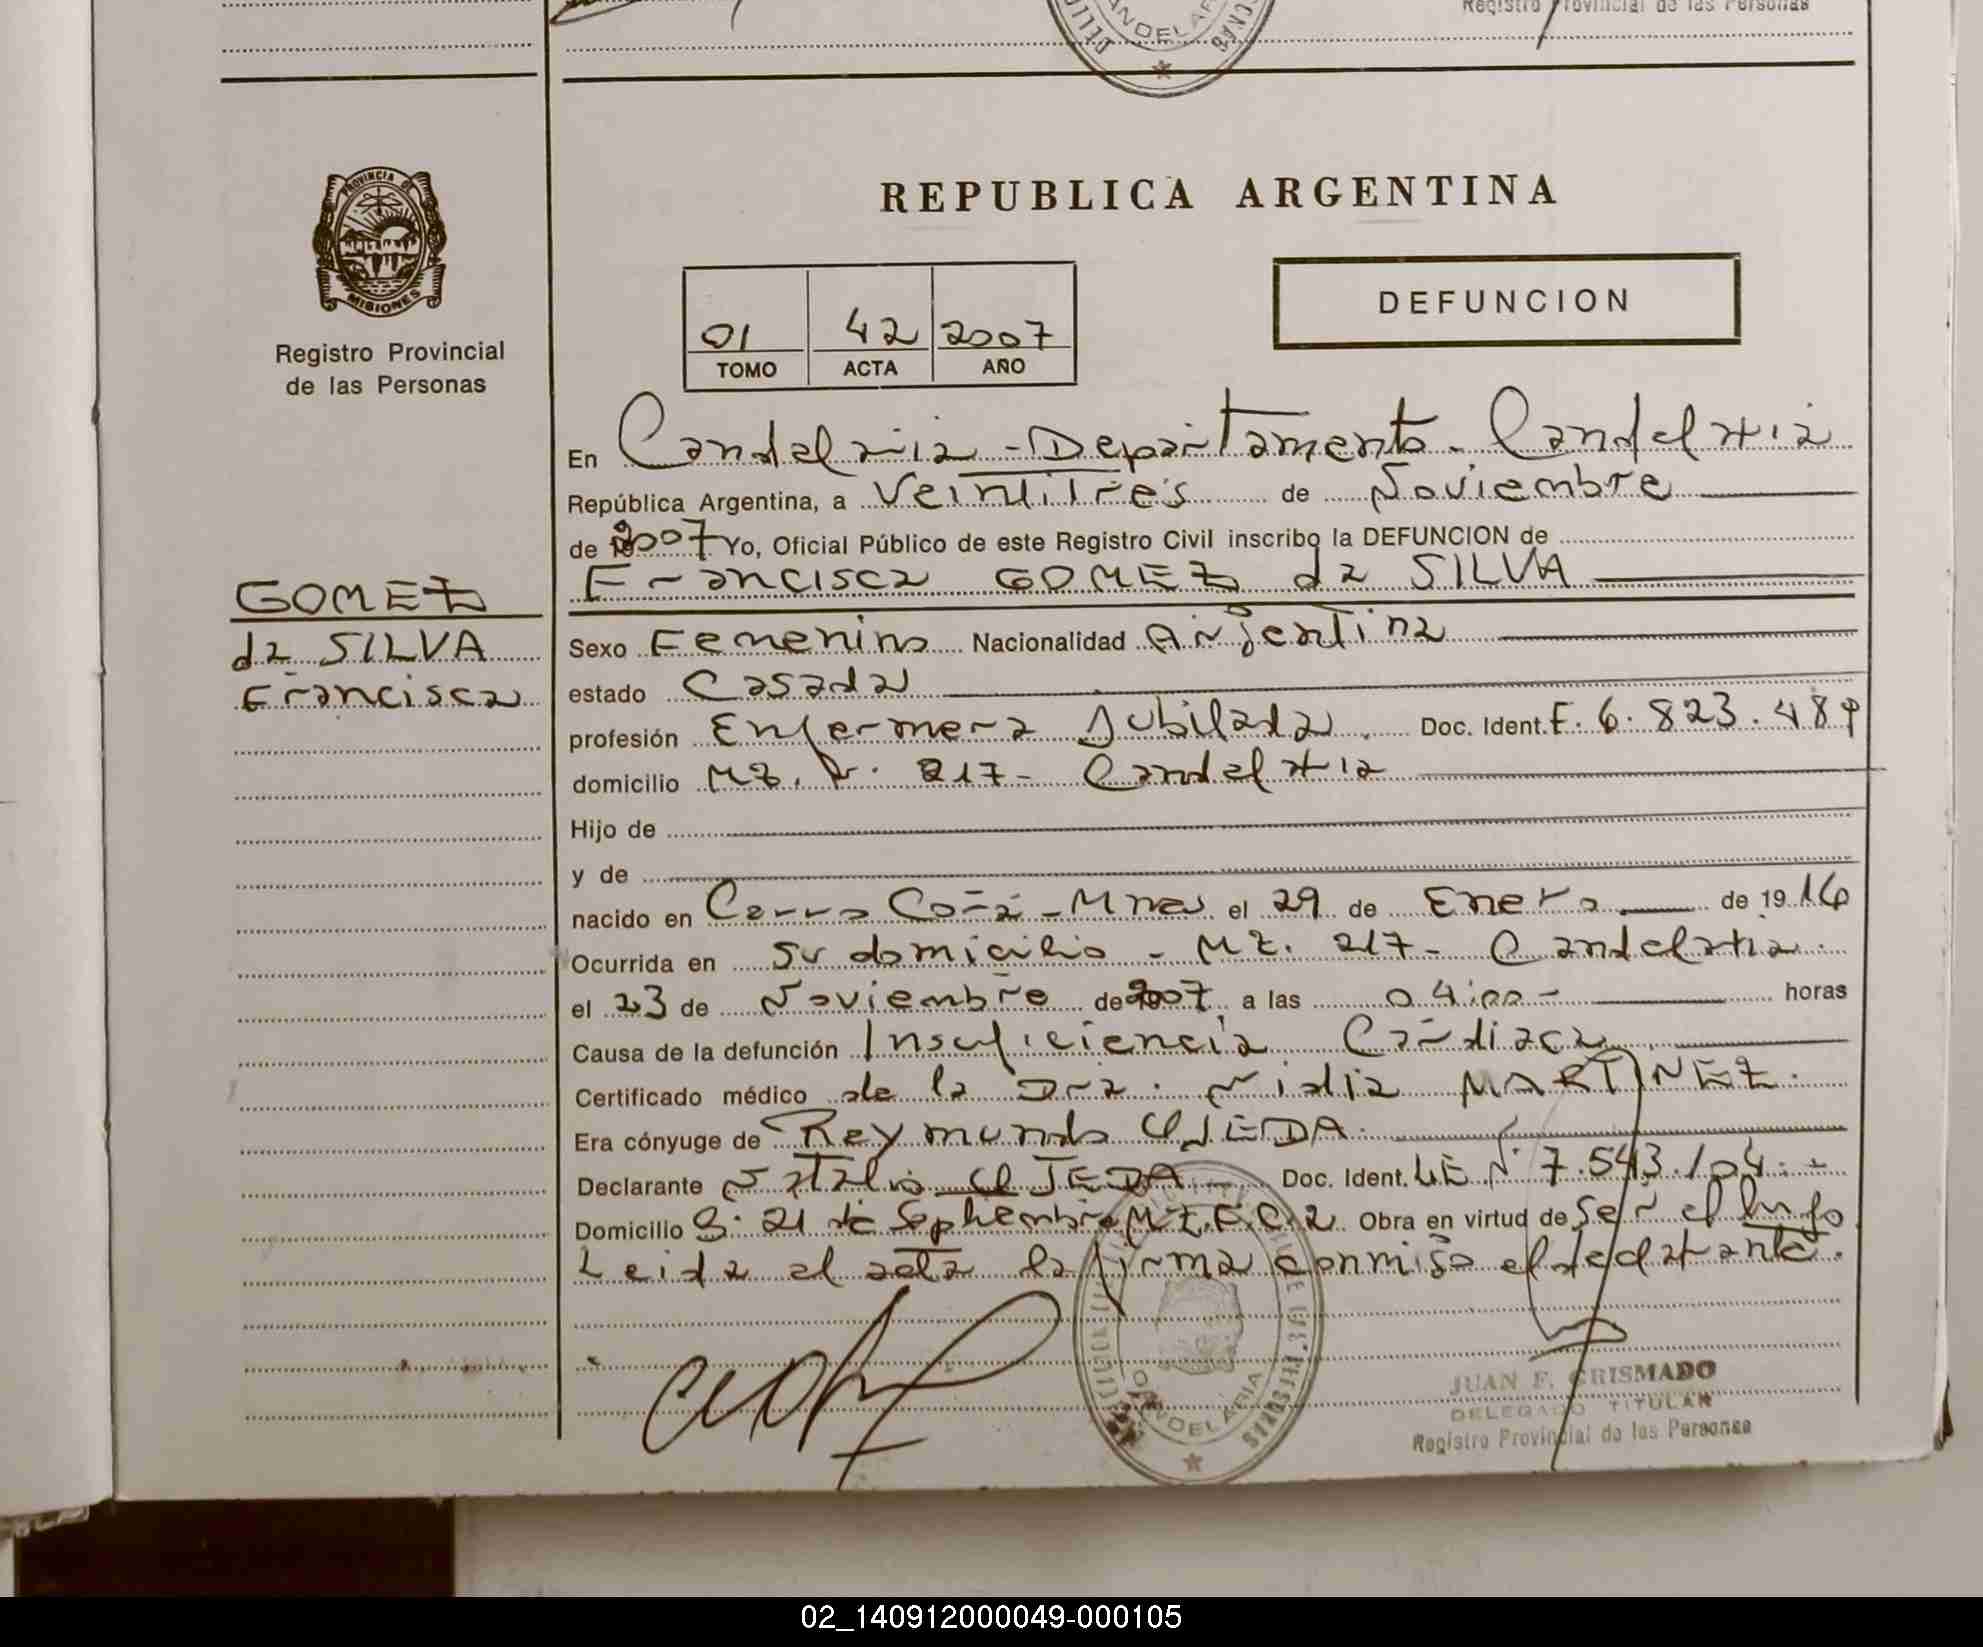 Registro Provincial de las Personas
CANDELARIA
PROVINCIA DE
MISIONES
Registro Provincial
de las Personas
REPUBLICA ARGENTINA
DEFUNCION
01 42 2007
TOMO ACTA AÑO
En Candelaria - Departamento - Candelaria
República Argentina, a Veintitrés de Noviembre
de 2007 Yo, Oficial Público de este Registro Civil inscribo la DEFUNCION de
Francisca GOMEZ da SILVA
GOMEZ
da SILVA
Francisca
Sexo Femenino Nacionalidad Argentina
estado Casada
profesión Enfermera Jubilada. Doc. Ident. F. 6.823.489
domicilio MZ. 217 - Candelaria
Hijo de
y de
nacido en Cerro Corá - Mnes el 29 de Enero de 1916
Ocurrida en su domicilio - MZ. 217 - Candelaria.
el 23 de Noviembre de 2007 a las 04:00 - horas
Causa de la defunción Insuficiencia Cardiaca.
Certificado médico de la Dra. Nidia MARTINEZ.
Era cónyuge de Reymundo OJEDA.
Declarante Natalio OJEDA - Doc. Ident. LE Nº 7.543.104. -
Domicilio B. 21 de Septiembre MZ. F. C. 2 Obra en virtud de Ser el hijo
Leida el acta la firma conmigo el declarante.
CANDELARIA
JUAN F. CRISMADO
DELEGADO TITULAR
Registro Provincial de las Personas
02_140912000049-000105